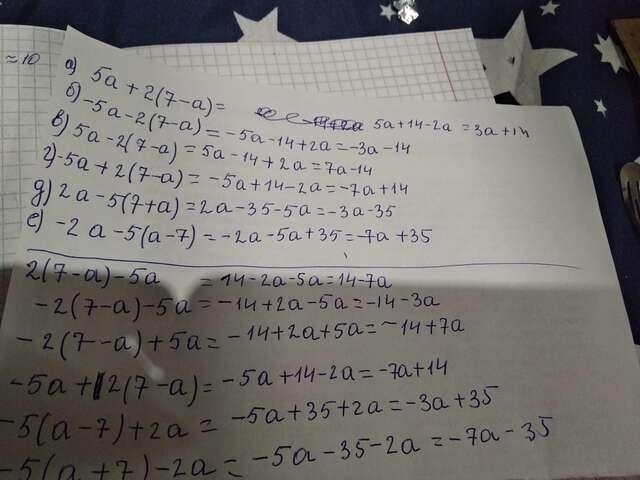 ≈10
а) 5a + 2(7-a) = 5a+14-2a = 3a+14
б) -5a - 2(7-a) = -5a-14+2a = -3a-14
в) 5a - 2(7-a) = 5a-14+2a = 7a-14
г) -5a + 2(7-a) = -5a+14-2a = -7a+14
д) 2a - 5(7+a) = 2a-35-5a = -3a-35
е) -2a - 5(a-7) = -2a-5a+35 = -7a+35
2(7-a)-5a = 14-2a-5a = 14-7a
-2(7-a)-5a = -14+2a-5a = -14-3a
-2(7-a)+5a = -14+2a+5a = -14+7a
-5a+2(7-a) = -5a+14-2a = -7a+14
-5(a-7)+2a = -5a+35+2a = -3a+35
-5(a+7)-2a = -5a-35-2a = -7a-35